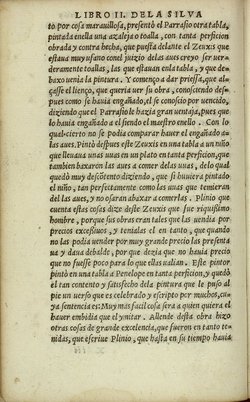 LIBRO II. DE LA SILVA
to por cosa marauillosa, presentò el Parrasio otra tabla,
pintada en ella vna azaleja o toalla, con tanta perficion
obrada y contra hecha, que puesta delante el Zeuxis que
estaua muy vfano con el juizio delas aues creyo ser ver
deramente toallas, las que estauan en la tabla, y que de
baxo uenia la pintura. Y començo a dar priessa, que al
çasse el lienço, que queria uer su obra, conosciendo des
pues como se hauia engañado, el se conoscio por uencido,
diziendo que el Parrasio le hazia gran uentaja, pues que
lo hauia engañado a el siendo el maestro enello. Con lo
qual cierto no se podia comparar hauer el engañado a
las aues. Pintò despues este Zeuxis en una tabla a un niño
que lleuaua unas uuas en un plato en tanta perficion, que
tambien baxaron las aues a comer delas uuas, delo qual
quedò muy descõtento diziendo, que si huuiera pintado
el niño, tan perfectamente como las uuas que temieran
del las aues, y no osaran abaxar a comerlas. Plinio que
cuenta estas cosas dize deste Zeuxis que fue riquissimo
hombre, porque sus obras eran tales que las uendia por
precios excessiuos, y tenialas el en tanto, que quando
no las podia uender por muy grande precio las presenta
ua y daua debalde, por que dezia que no hauia precio
que no fuesse poco para lo que ellas ualian. Este pintor
pintò en una tabla a Penelope en tanta perficion, y quedò
el tan contento y satisfecho dela pintura que le puso al
pie un uerso que es celebrado y escripto por muchos, cu
ya sentencia es: Muy mas facil cosa sera a quien quiera el
hauer embidia que el ymitar. Allende desta obra hizo
otras cosas de grande excelencia, que fueron en tanto te
nidas, que escriue Plinio, que hasta en su tiempo hauia